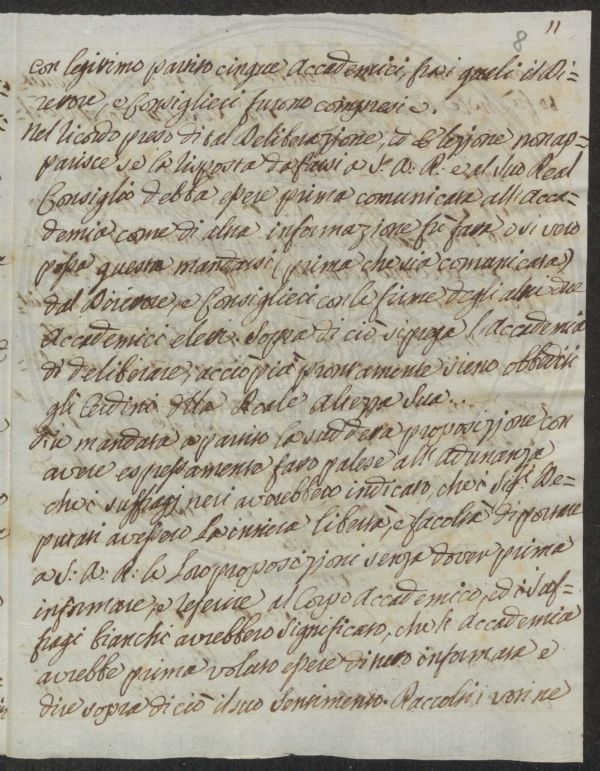 8 11
con legitimo partito cinque Accademici, fra i quali il Di=
rettore, e Consiglieri furono compresi.
Nel ricordo preso di tal Deliberazione, ed Elezione non ap=
parisce se la risposta da farsi a S. A. R. e al suo Real
Consiglio debba essere prima comunicata all'Acca=
demia come di altra informazione fù fatta o si vero
possa questa mandarsi (prima che sia comunicata)
dal Direttore, e Consiglieri con le firme degli altri due
Accademici eletti. Sopra di ciò si prega l'Accademia
di deliberare, acciò più prontamente sieno obbediti
gli Ordini della Reale Altezza Sua.
Fu mandata a partito la suddetta proposizione con
avere espressamente fatto palese all'Adunanza
che i suffragi neri averebbero indicato, che i Sig.ri De=
putati avessero la intiera libertà, e facoltà di portare
a S. A. R. le loro proposizioni senza dover prima
informare, e referire al Corpo Accademico, ed i suf=
fragi bianchi avrebbero significato, che l'Accademia
avrebbe prima voluto essere di tutto informata e
dire sopra di ciò il suo sentimento. Raccolti i voti ne